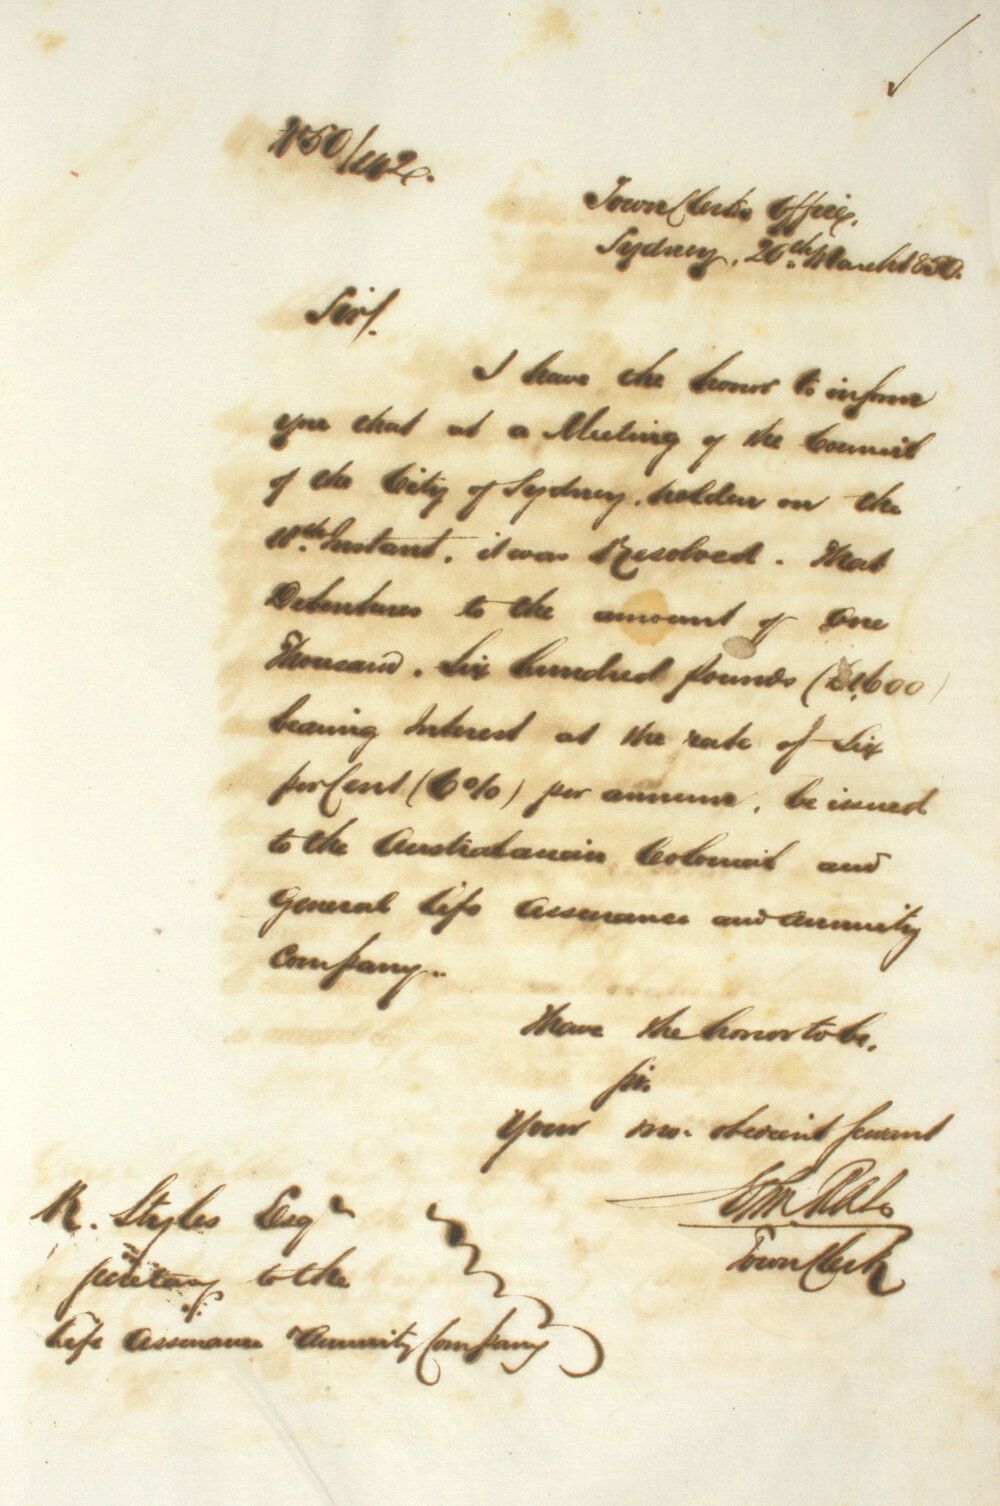 #50/142.
Town Clerks Office,
Sydney, 26th March 1850.
Sir/.
I have the honor to inform
you that at a Meeting of the Council
of the City of Sydney, holden on the
18th Instant, it was Resolved. That
Debentures to the amount of One
Thousand, Six hundred pounds (£1,600)
bearing Interest at the rate of Six
per Cent (6%) per annum, be issued
to the Australasian Colonial and
General Life Assurance and Annuity
Company..
I have the honor to be,
Sir.
Your mo. obedient Servant
Town Clerk
R. Styles Esqr
Secretary to the
Life Assurance Annuity Company